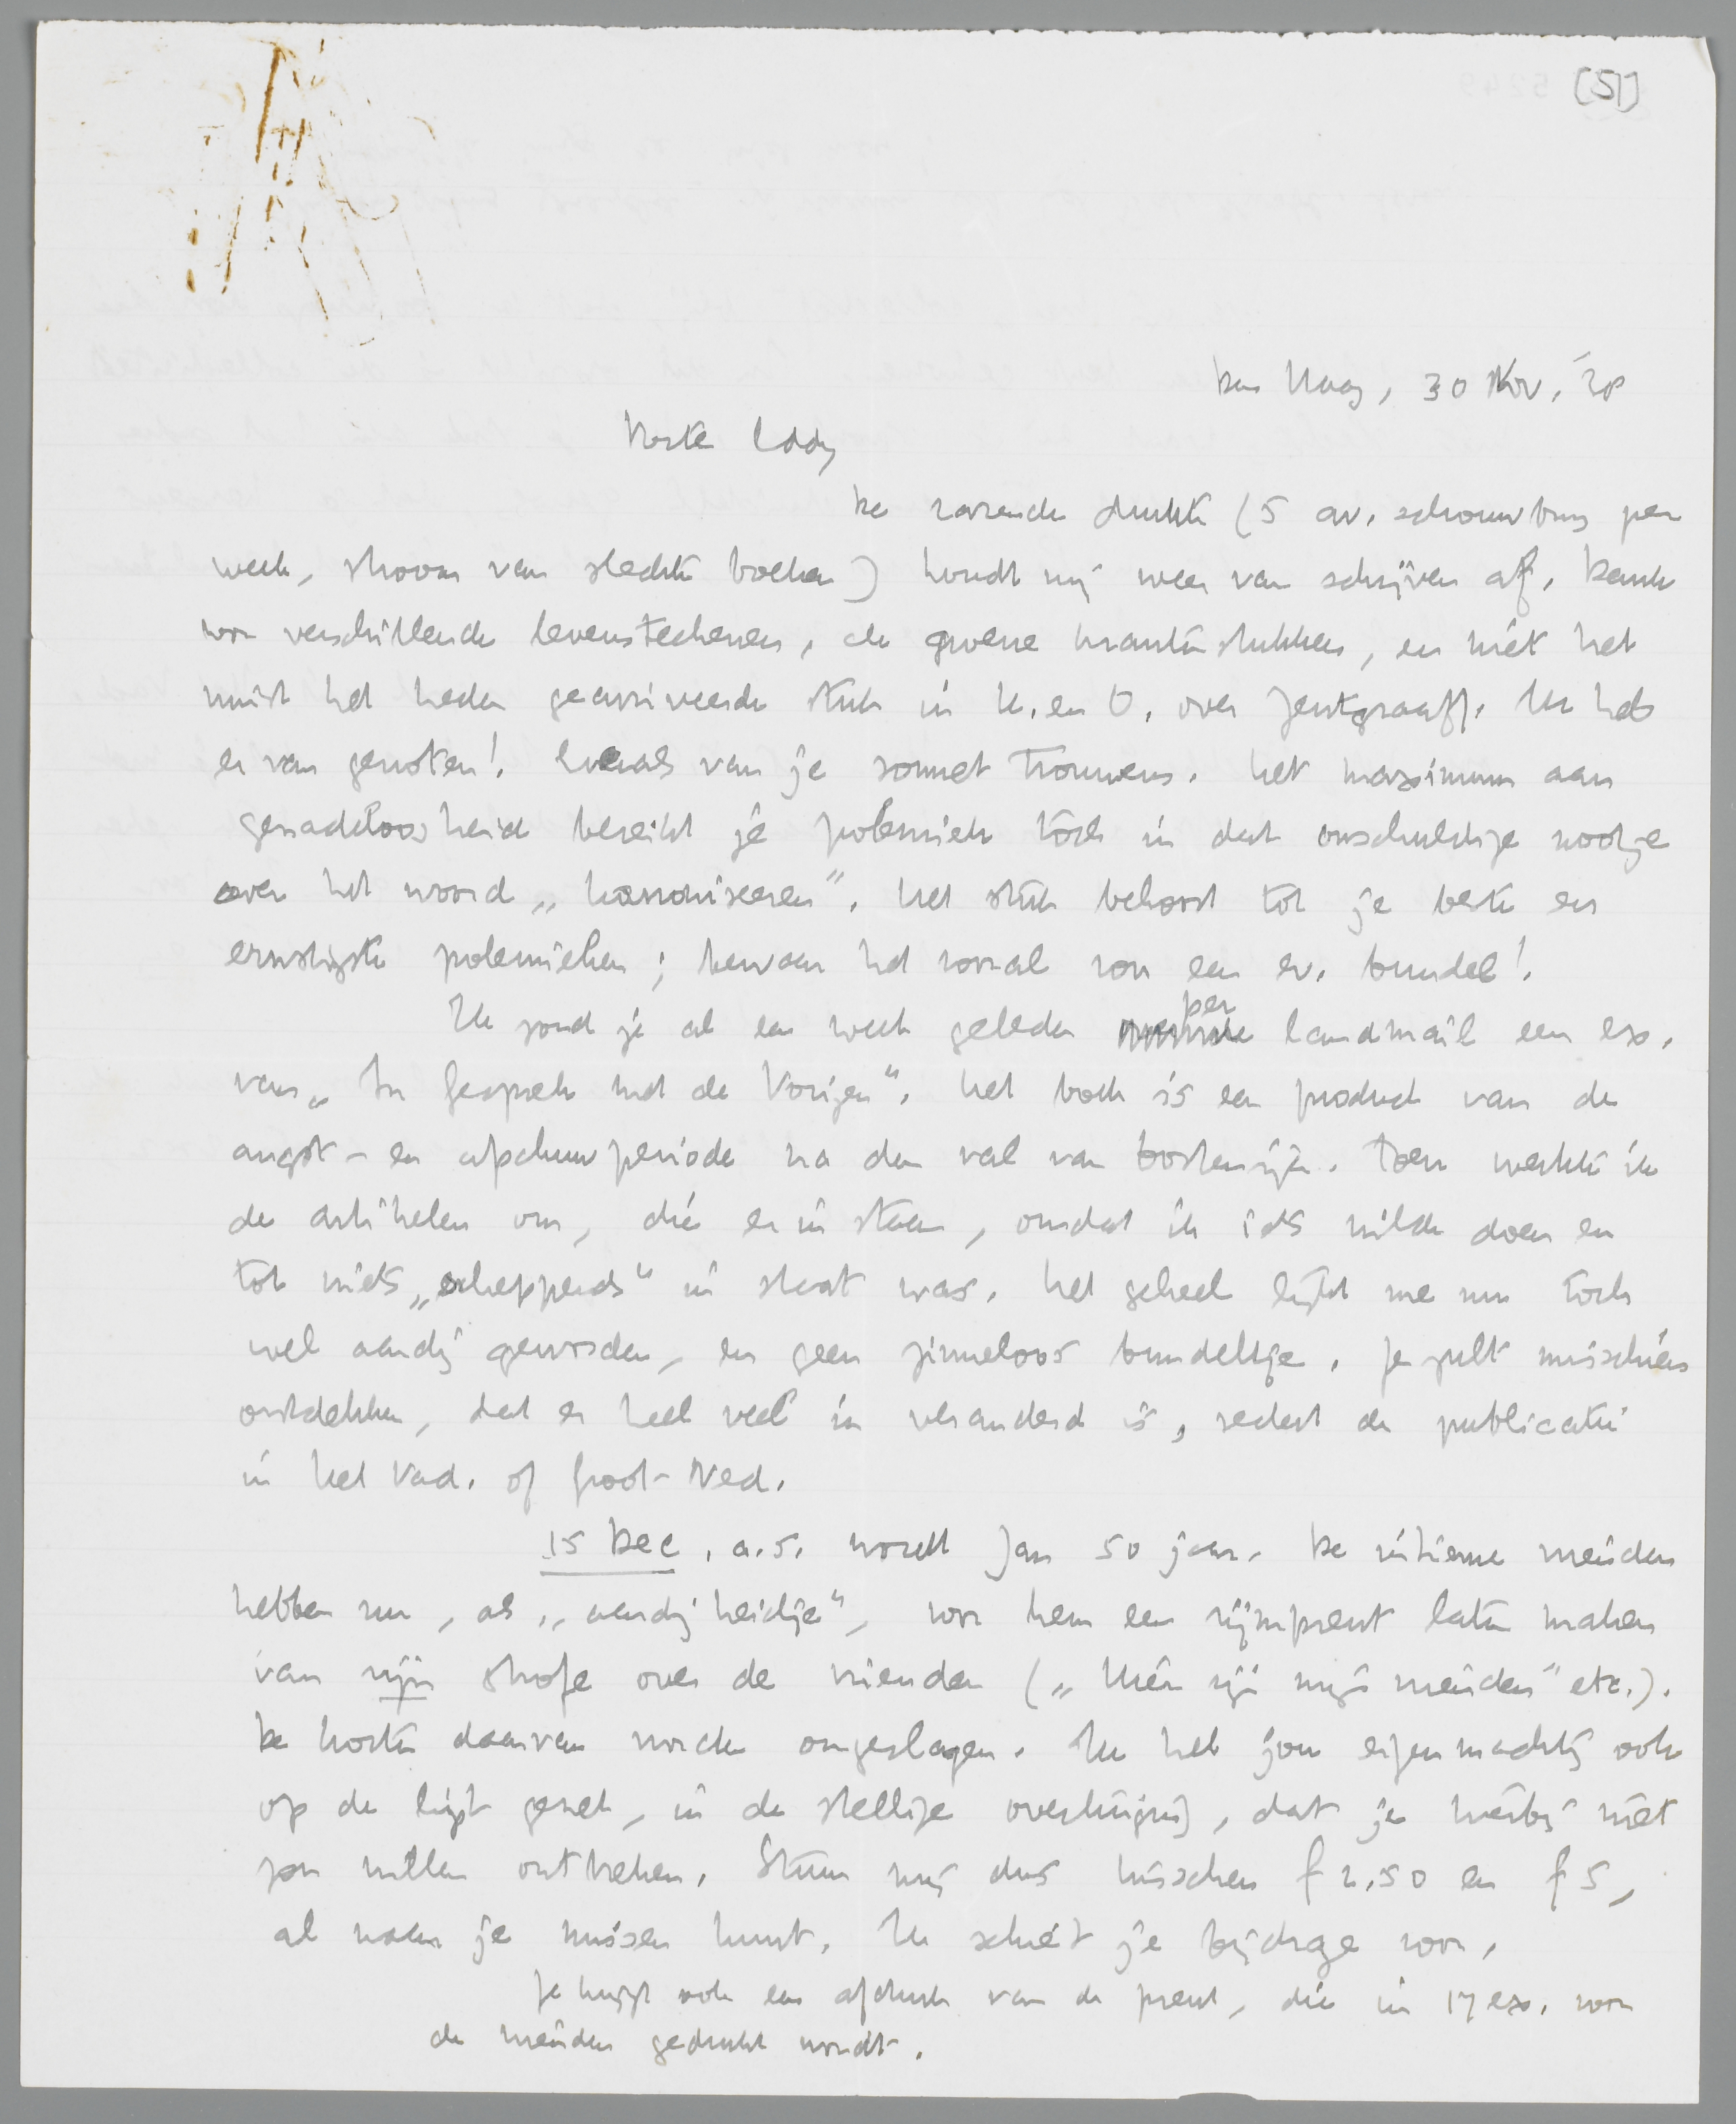 [51]
Den Haag, 30 Nov. '38
Beste Eddy
De razende drukte (5 av. schouwburg per
week, stroom van slechte boeken) houdt mij weer van schrijven af. Dank
voor verschillende levensteekenen, de groene krantenstukken, en niet het
minst het heden gearriveerde stuk in K. en O. over Zentgraaff. Ik heb
er van genoten! Evenals van je sonnet trouwens. Het maximum aan
genadeloosheid bereikt je polemiek toch in dat onschuldige nootje
over het woord „kannoniseren”. Het stuk behoort tot je beste en
ernstigste polemieken; bewaar het vooral voor een ev. bundel!
Ik zond je al een week geleden per landmail een ex.
van „In Gesprek met de Vorigen”. Het boek is een product van de
angst- en afschuwperiode na den val van Oostenrijk. Toen werkte ik
de artikelen om, die er in staan, omdat ik iets wilde doen en
tot niets „scheppends” in staat was. Het geheel lijkt me nu toch
wel aardig geworden, en geen zinneloos bundeltje. Je zult misschien
ontdekken, dat er heel veel in veranderd is, sedert de publicatie
in Het Vad. of Groot-Ned.
15 Dec. a.s. wordt Jan 50 jaar. De intieme vrienden
hebben nu, als „aardigheidje”, voor hem een rijmprent laten maken
van zijn strofe over de vrienden („Hier zijn mijn vrienden” etc.).
De kosten daarvan worden omgeslagen. Ik heb jou eigenmachtig ook
op de lijst gezet, in de stellige overtuiging, dat je hierbij niet
zou willen ontbreken. Stuur mij dus tusschen f 2,50 en f 5,
al naar je missen kunt. Ik schiet je bijdrage voor.
Je krijgt ook een afdruk van de prent, die in 17 ex. voor
de vrienden gedrukt wordt.